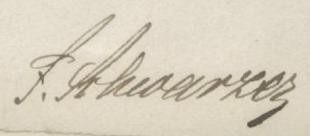 F. Schwarzer